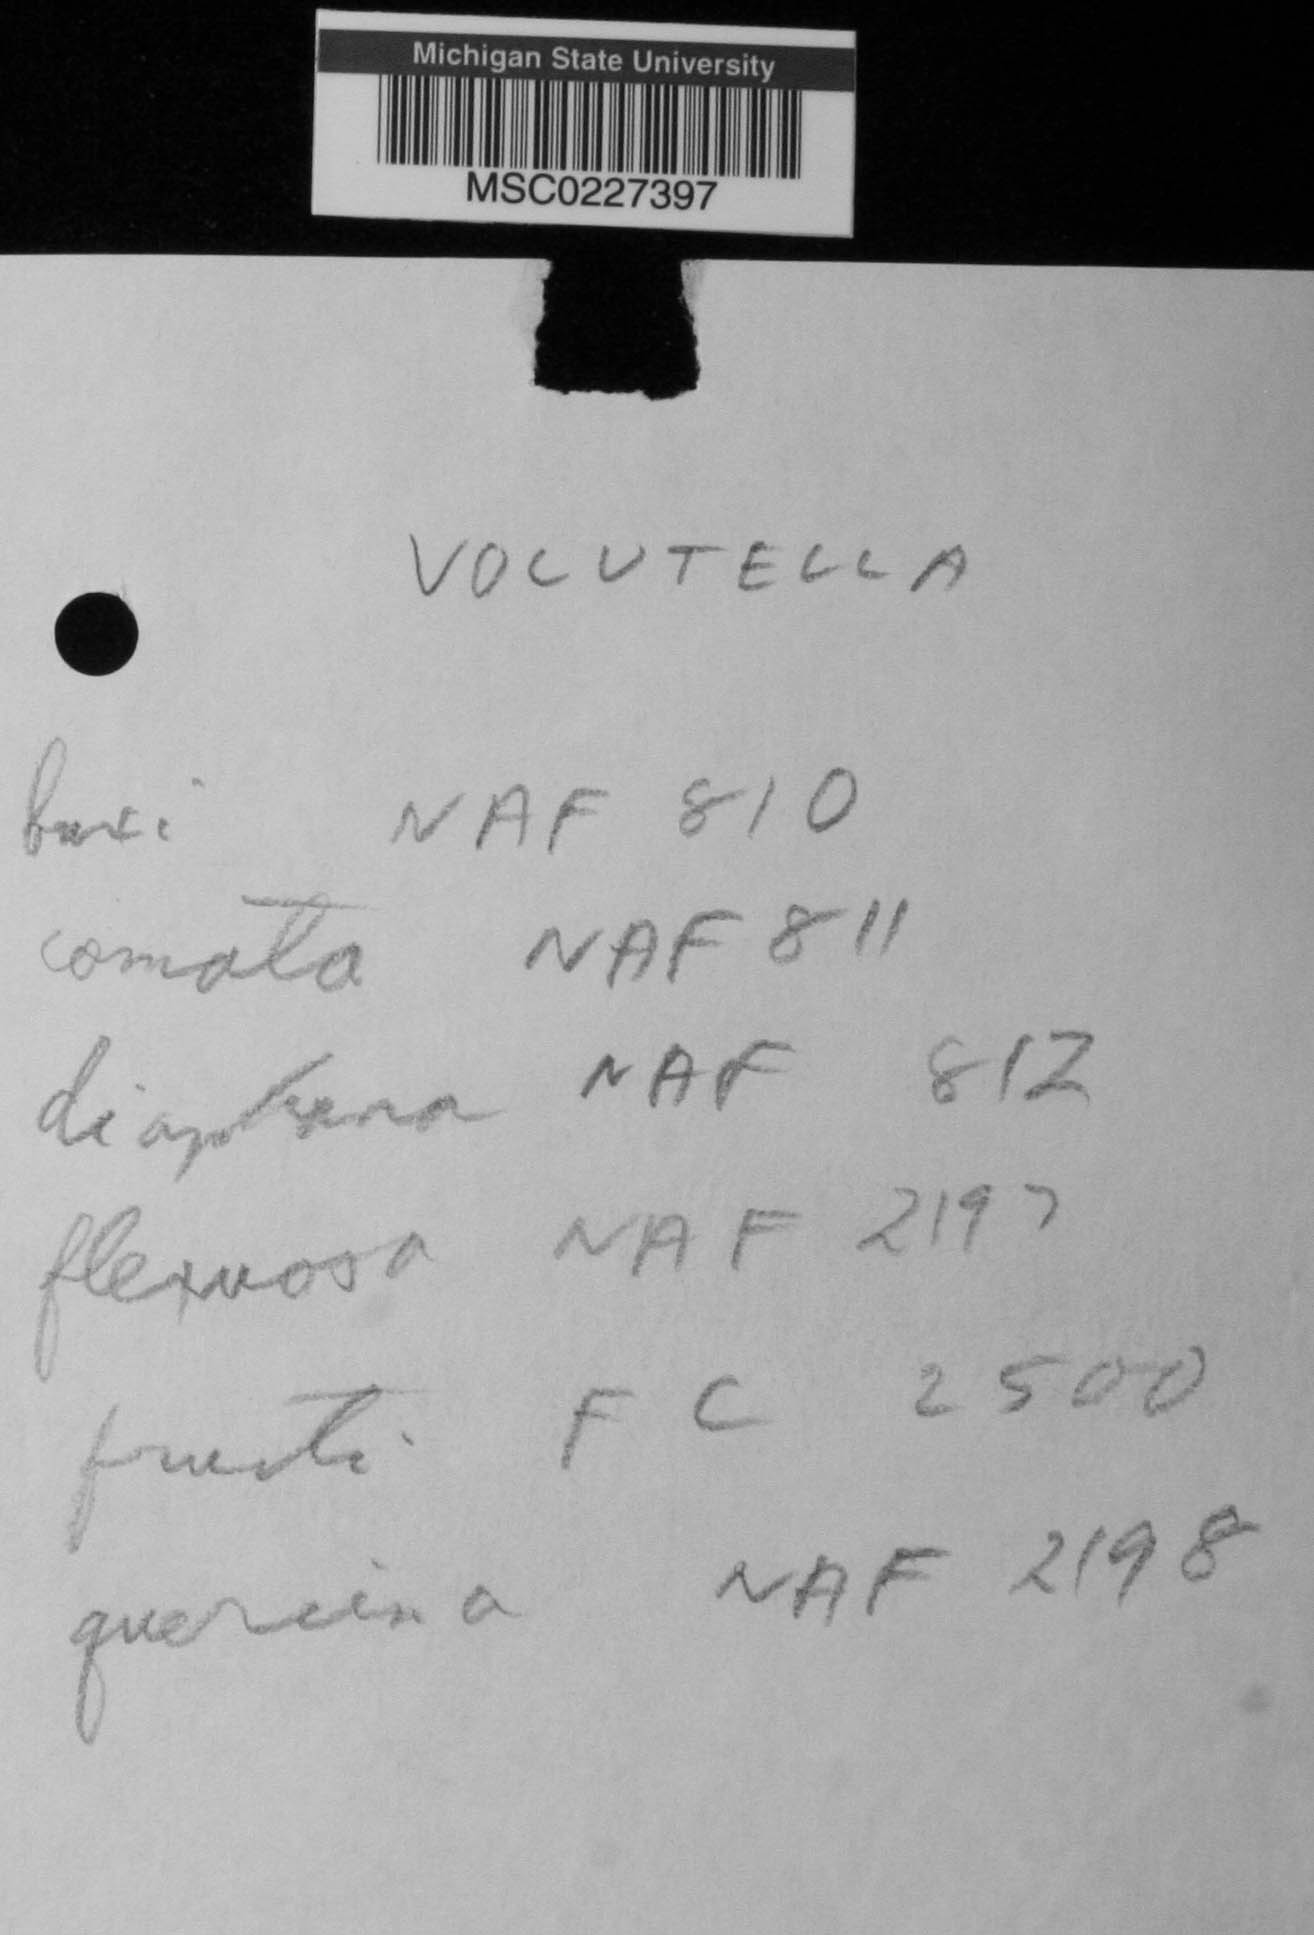 Michigan State University
MSC0227397
VOLUTELLA
buxi NAF 810
comata NAF 811
diaphana NAF 812
flexuosa NAF 2197
fructi FC 2500
quercina NAF 2198